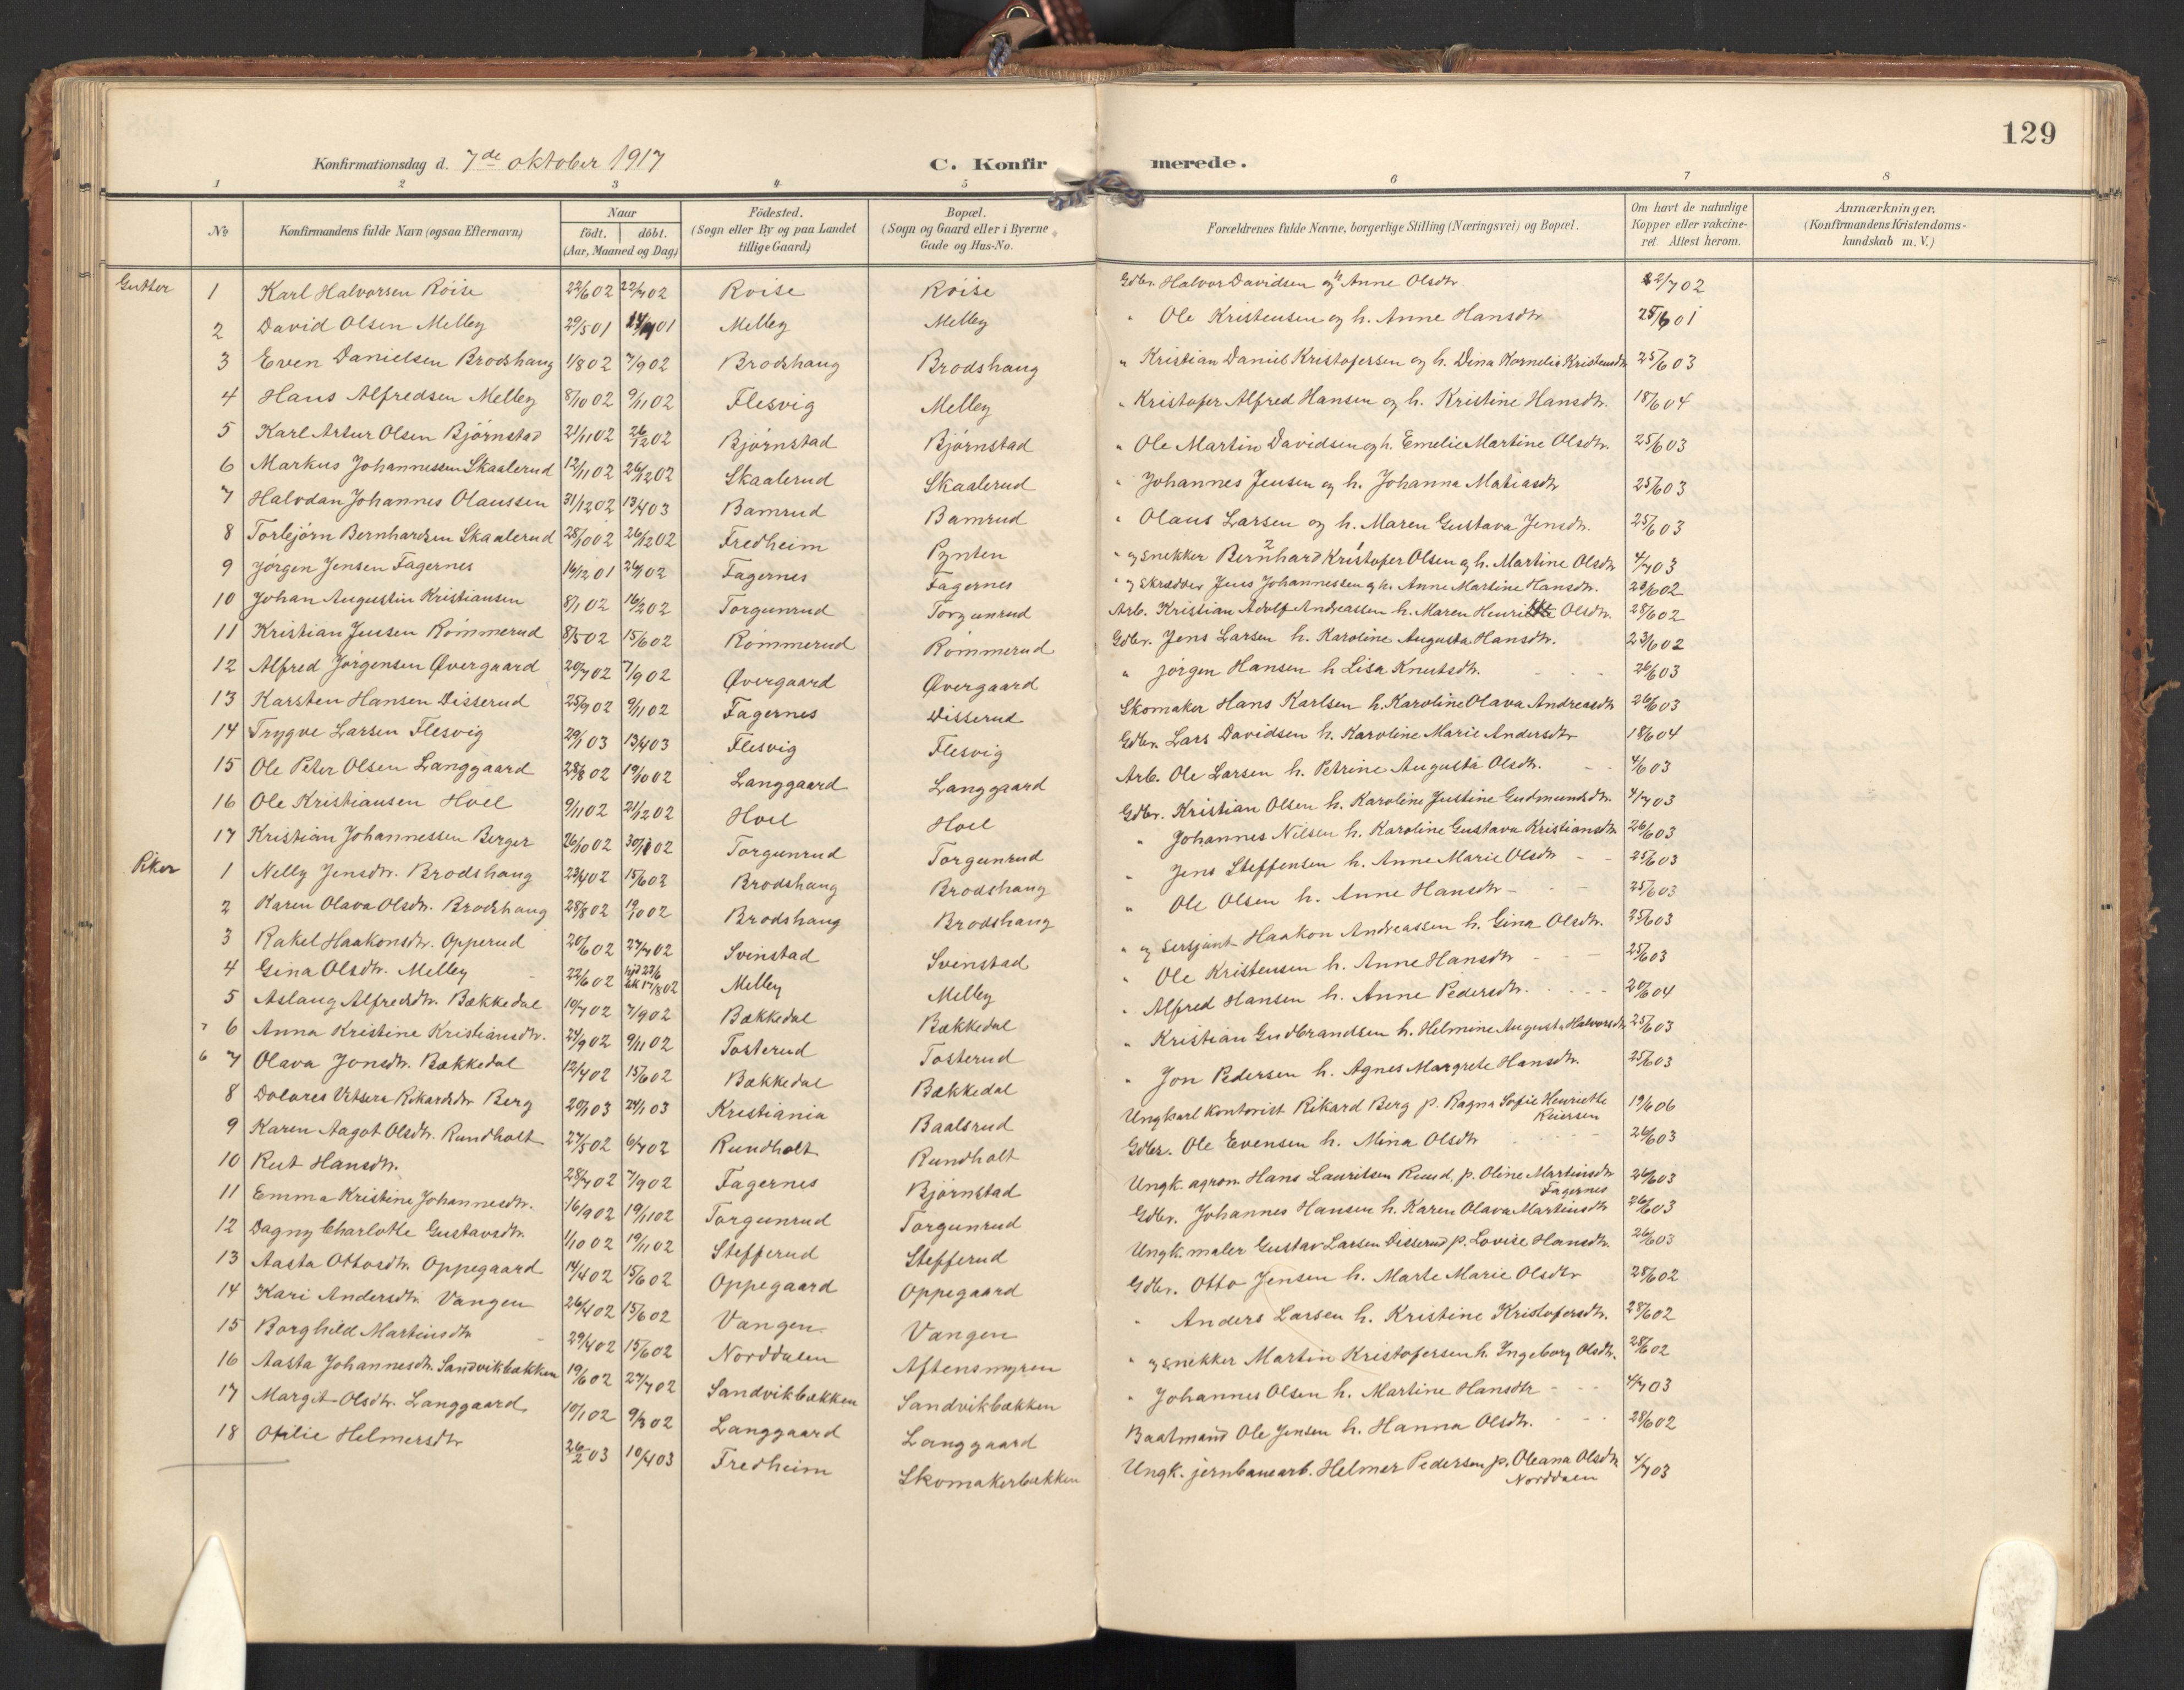 129
Konfirmationsdag d. 7de oktober 1917
C. Konfirmerede.
1 2 3 4 5 6 7 8
No
Konfirmandens fulde Navn (ogsaa Efternavn)
Naar
født. döbt.
(Aar, Maaned og Dag)
Födested.
(Sogn eller By og paa Landet
tillige Gaard)
Bopæl.
(Sogn og Gaard eller i Byerne
Gade og Hus-No.
Forældrenes fulde Navne, borgerlige Stilling (Næringsvei) og Bopæl.
Om havt de naturlige
Kopper eller vakcine-
ret Attest herom.
Anmærkninger.
(Konfirmandens Kristendoms-
kundskab m. V.)
Gutter 1 Karl Halvorsen Röise 22/6 02 22/7 02 Roise Roise Gdbr. Halvor Davidsen og h Anne Olsdtr. 2/7 02
2 David Olsen Melley 29/5 01 14/7 01 Melley Melley " Ole Kristensen og h. Anne Hansdtr 25/6 01
3 Even Danielsen Brodshaug 1/8 02 7/9 02 Brodshaug Brodshaug " Kristian Daniel Kristofersen og h. Dina Kornelia Kristensdtr 25/6 03
4 Hans Alfredsen Melley 8/10 02 9/11 02 Flesvig Melley " Kristofer Alfred Hansen og h. Kristine Hansdtr. 18/6 04
5 Karl Artur Olsen Björnstad 21/11 02 26/12 02 Björnstad Björnstad " Ole Martin Davidsen og h. Emelie Martine Olsdtr. 25/6 03
6 Markus Johannessen Skaalerud 12/11 02 26/12 02 Skaalerud Skaalerud " Johannes Jensen og h. Johanna Matiasdtr 25/6 03
7 Halvdan Johannes Olaussen 31/12 02 13/4 03 Bamrud Bamrud " Olaus Larsen og h. Maren Gustava Jensdtr. 25/6 03
8 Torbjörn Bernhardsen Skaalerud 28/10 02 26/12 02 Fredheim Pynten " og snekker Bernhard 2 Kristofer 1 Olsen og h. Martine Olsdtr 4/7 03
9 Jörgen Jensen Fagernes 16/12 01 26/1 02 Fagernes Fagernes " og skrædder Jens Johannessen og h. Anne Martine Hansdtr. 28/6 02
10 Johan Augustin Kristiansen 8/1 02 16/2 02 Torgunrud Torgunrud Arb. Kristian Adolf Andreassen h. Maren Henriette Olsdtr. 28/6 02
11 Kristian Jensen Römmerud 8/5 02 15/6 02 Römmerud Römmerud Gdbr. Jens Larsen h. Karoline Augusta Hansdtr. 23/6 02
12 Alfred Jörgensen Øvergaard 20/7 02 7/9 02 Øvergaard Øvergaard " Jörgen Hansen h Lisa Knutsdtr. 26/6 03
13 Karsten Hansen Disserud 25/9 02 9/11 02 Fagernes Disserud Skomaker Hans Karlsen h. Karoline Olava Andreasdtr 26/6 03
14 Trygve Larsen Flesvig 29/1 03 13/4 03 Flesvig Flesvig Gdbr. Lars Davidsen h. Karoline Marie Andersdtr 18/6 04
15 Ole Peter Olsen Langgaard 28/8 02 19/10 02 Langgaard Langgaard Arb. Ole Larsen h. Petrine Augusta Olsdtr. 4/6 03
16 Ole Kristiansen Hoel 9/11 02 21/12 02 Hoel Hoel Gdbr. Kristian Olsen h. Karoline Justine Gudmundsdtr. 4/7 03
17 Kristian Johannessen Berger 26/10 02 30/11 02 Torgunrud Torgunrud " Johannes Nilsen h. Karoline Gustava Kristiansdtr 26/6 03
Piker 1 Nelly Jensdtr. Brodshaug 22/4 02 15/6 02 Brodshaug Brodshaug " Jens Steffensen h. Anne Marie Olsdtr 25/6 03
2 Karen Olava Olsdtr. Brodshaug 28/8 02 19/10 02 Brodshaug Brodshaug " Ole Olsen h. Anne Hansdtr 25/6 03
3 Rakel Haakonsdtr. Opperud 20/6 02 27/7 02 Svinstad Svinstad " og sersjant Haakon Andreassen h. Gina Olsdtr. 25/6 03
4 Gina Olsdtr. Melley 22/6 02 hjd 23/6 bk 17/8 02 Melley Melley " Ole Kristensen h. Anne Hansdtr 25/6 03
5 Aslaug Alfredsdtr. Bækkedal 10/7 02 7/9 02 Bækkedal Bækkedal " Alfred Hansen h. Anne Pedersdtr. 20/6 04
7 6 Anna Kristine Kristiansdtr. 24/9 02 9/11 02 Tosterud Tosterud " Kristian Gudbrandsen h. Helmine Augusta Halvorsdtr 25/6 03
6 7 Olava Jonsdtr. Bækkedal 12/4 02 15/6 02 Bækkedal Bækkedal " Jon Pedersen h. Agnes Margrete Hansdtr. 25/6 03
8 Dolores Rikardsdtr Berg 20/1 03 24/1 03 Kristiania Baalsrud Ungkarl kontorist Rikard Berg p. Ragna Sofie Henriette Reiersen 19/6 06
9 Karen Aagot Olsdtr. Rundholt 27/5 02 6/7 02 Rundholt Rundholt Gdbr. Ole Evensen h. Mina Olsdtr 26/6 03
10 Rut Hansdtr. 28/7 02 7/9 02 Fagernes Björnstad Ungk. agron. Hans Lauritsen Ruud p. Oline Martinsdtr Fagernes 26/6 03
11 Emma Kristine Johannesdtr. 16/9 02 19/11 02 Torgunrud Torgunrud Gdbr. Johannes Hansen h. Karen Olava Martinsdtr 26/6 03
12 Dagny Charlotte Gustavsdtr. 1/10 02 19/11 02 Stefferud Stefferud Ungk. maler Gustav Larsen Disserud p. Lovise Hansdtr. 26/6 03
13 Aasta Ottosdtr. Oppegaard 14/4 02 15/6 02 Oppegaard Oppegaard Gdbr. Otto Jensen h. Marte Marie Olsdtr 28/6 02
14 Kari Andersdtr. Vangen 26/4 02 15/6 02 Vangen Vangen " Anders Larsen h. Kristine Kristofersdtr. 28/6 02
15 Borghild Martinsdtr 29/4 02 15/6 02 Norddalen Aftensmyren " og snekker Martin Kristofersen h. Ingeborg Olsdtr. 28/6 02
16 Aasta Johannesdtr. Sandvikbækken 19/6 02 27/7 02 Sandvikbækken Sandvikbækken " Johannes Olsen h. Martine Hansdtr 4/7 03
17 Margit Olsdtr. Langgaard 10/1 02 9/3 02 Langgaard Langgaard Baatmand Ole Jensen h. Hanna Olsdtr. 28/6 02
18 Otilie Helmersdtr 26/2 03 10/4 03 Fredheim Skomakerbækken Ungk. jernbanearb. Helmer Pedersen p. Oleana Olsdtr Norddalen 4/7 03